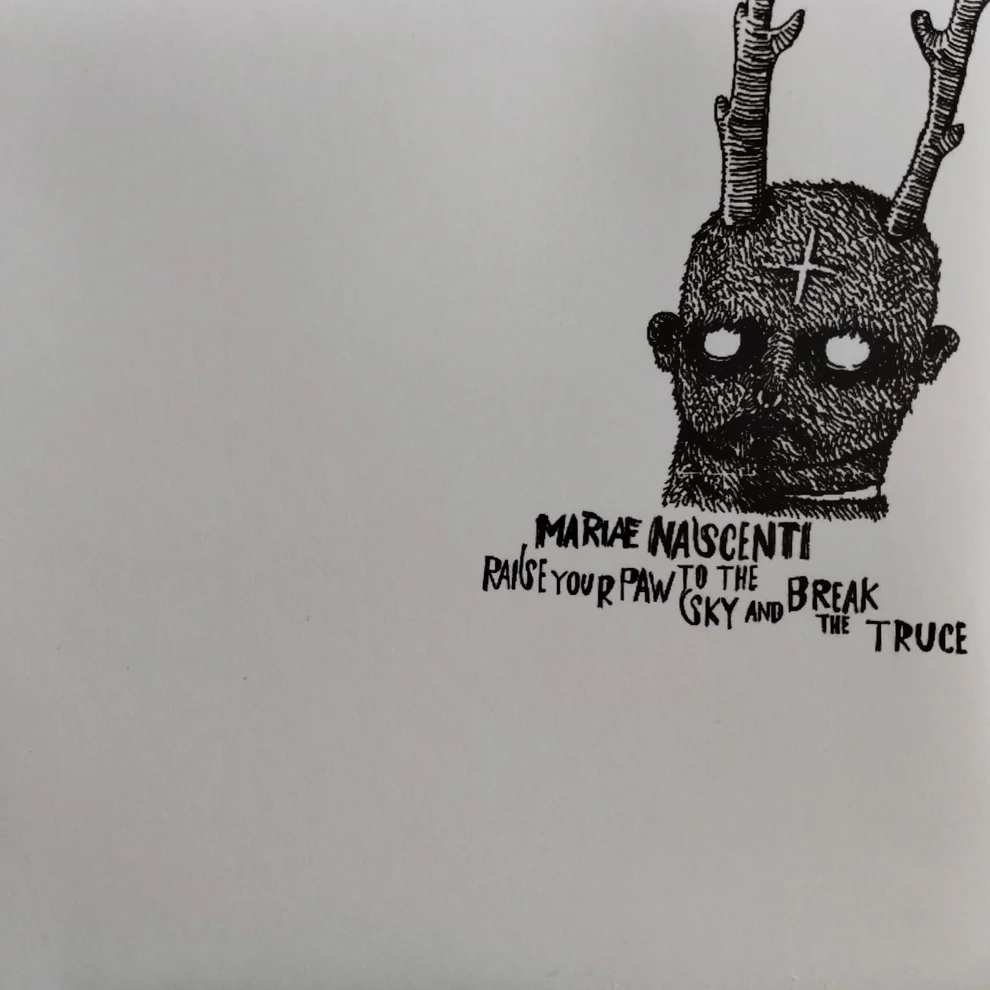 MARIAE NASCENTI
RAISE YOUR PAW TO THE SKY AND BREAK THE TRUCE